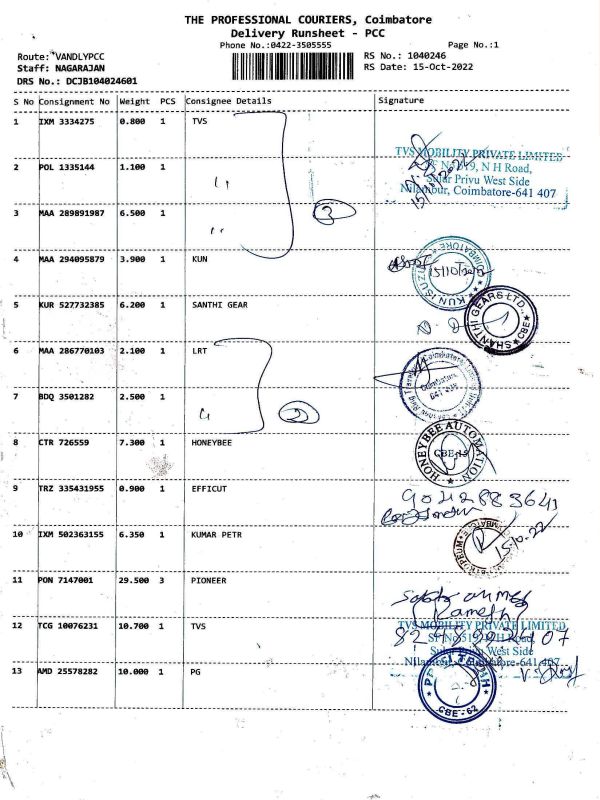 THE PROFESSIONAL COURIERS, Coimbatore
Delivery Runsheet - PCC
Phone No.:0422-3505555
Page No.:1
Route: VANDLYPCC
RS No.: 1040246
Staff: NAGARAJAN
RS Date: 15-Oct-2022
DRS No.: DCJB104024601
S No Consignment No Weight PCS Consignee Details Signature
1 IXM 3334275 0.800 1 TVS
TVS MOBILITY PRIVATE LIMITED
2 POL 1335144 1.100 1 "
SF No 519, N H Road,
Sulur Privu West Side
Nilambur, Coimbatore-641 407
3 MAA 289891987 6.500 1 "
3
4 MAA 294095879 3.900 1 KUN
KUN ISUZU COIMBATORE
15/10/2022
5 KUR 527732385 6.200 1 SANTHI GEAR
SHANTHI GEARS LTD., CBE
6 MAA 286770103 2.100 1 LRT
Coimbatore
641
7 BDQ 3501282 2.500 1 "
2
8 CTR 726559 7.300 1 HONEYBEE
HONEYBEE AUTOMATION
CBE-15
9 TRZ 335431955 0.900 1 EFFICUT
9042883643
10 IXM 502363155 6.350 1 KUMAR PETR
15.10.22
11 PON 7147001 29.500 3 PIONEER
Ramesh
12 TCG 10076231 10.700 1 TVS
TVS MOBILITY PRIVATE LIMITED
SF No 519, N H Road,
Sulur Privu West Side
Nilambur, Coimbatore-641 407
13 AMD 25578282 10.000 1 PG
CBE-62